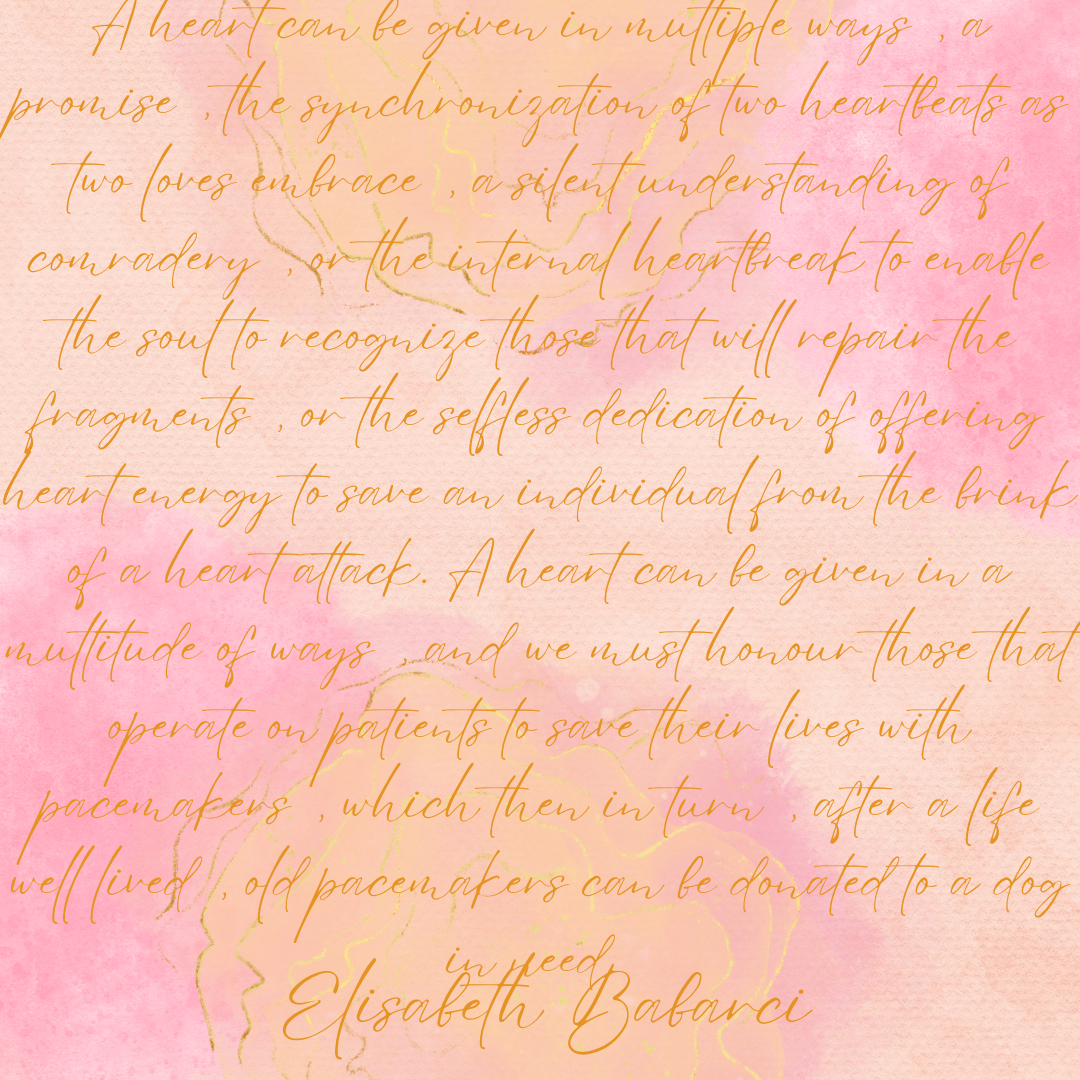 A heart can be given in multiple ways , a
promise , the synchronization of two heartbeats as
two loves embrace , a silent understanding of
comradery , or the internal heartbreak to enable
the soul to recognize those that will repair the
fragments , or the selfless dedication of offering
heart energy to save an individual from the brink
of a heart attack. A heart can be given in a
multitude of ways , and we must honour those that
operate on patients to save their lives with
pacemakers , which then in turn , after a life
well lived , old pacemakers can be donated to a dog
in need
Elisabeth Babarci